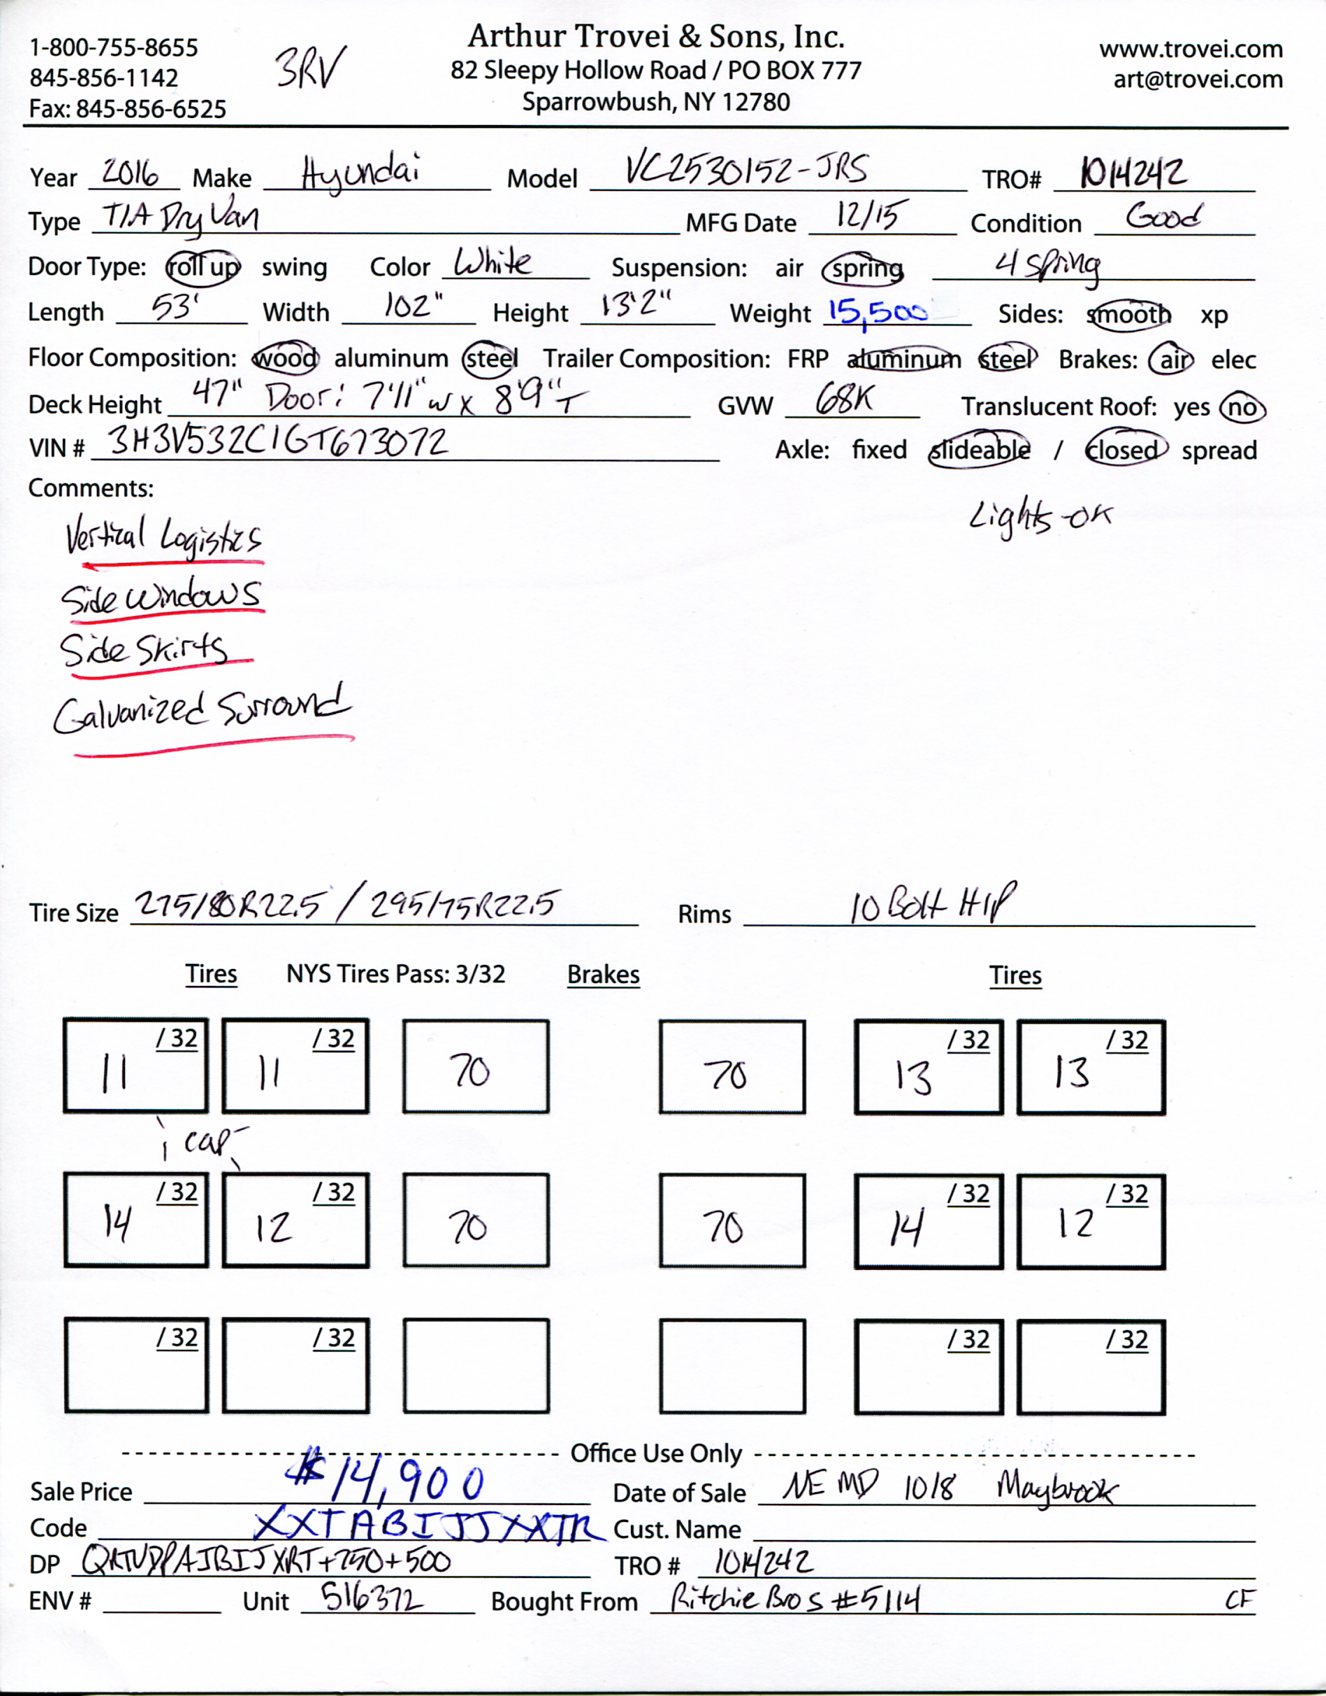 1-800-755-8655
845-856-1142
Fax: 845-856-6525
3RV
Arthur Trovei & Sons, Inc.
82 Sleepy Hollow Road / PO BOX 777
Sparrowbush, NY 12780
www.trovei.com
art@trovei.com
Year 2016 Make Hyundai Model VC2530152-JRS TRO# 1014242
Type T/A Dry Van MFG Date 12/15 Condition Good
Door Type: roll up swing Color White Suspension: air spring 4 spring
Length 53' Width 102" Height 13'2" Weight 15,500 Sides: smooth xp
Floor Composition: wood aluminum steel Trailer Composition: FRP aluminum steel Brakes: air elec
Deck Height 47" Door: 7'11"w x 8'9"T GVW 68K Translucent Roof: yes no
VIN # 3H3V532C1GT673072 Axle: fixed slideable / closed spread
Comments:
Lights-OK
Vertical Logistics
Side Windows
Side Skirts
Galvanized Surround
Tire Size 275/80R22.5 / 295/75R22.5 Rims 10 Bolt H/P
Tires NYS Tires Pass: 3/32 Brakes Tires
11 /32 11 /32 70 70 13 /32 13 /32
cap
14 /32 12 /32 70 70 14 /32 12 /32
/32 /32 /32 /32
Office Use Only
Sale Price $14,900 Date of Sale NE MD 10/8 Maybrook
Code XXTABIJJXXTR Cust. Name
DP +750+500 TRO # 1014242
ENV # Unit 516372 Bought From Ritchie Bros #5114 CF